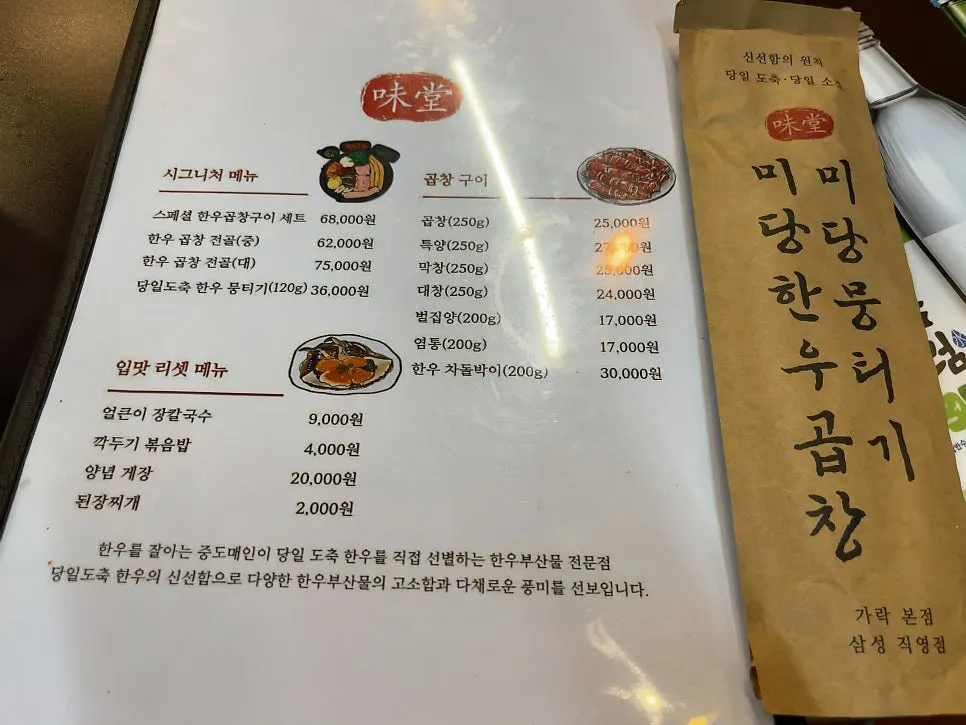 味堂
시그니처 메뉴
스페셜 한우곱창구이 세트 68,000원
한우 곱창 전골(중) 62,000원
한우 곱창 전골(대) 75,000원
당일도축 한우 뭉티기(120g) 36,000원
입맛 리셋 메뉴
얼큰이 장칼국수 9,000원
깍두기 볶음밥 4,000원
양념 게장 20,000원
된장찌개 2,000원
곱창 구이
곱창(250g) 25,000원
특양(250g)
막창(250g) 25,000원
대창(250g) 24,000원
벌집양(200g) 17,000원
염통(200g) 17,000원
한우 차돌박이(200g) 30,000원
한우를 잘아는 중도매인이 당일 도축 한우를 직접 선별하는 한우부산물 전문점
당일도축 한우의 신선함으로 다양한 한우부산물의 고소함과 다채로운 풍미를 선보입니다.
신선함의 원칙
당일 도축·당일 소
味堂
미당뭉티기
미당한우곱창
가락 본점
삼성 직영점